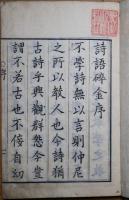 詩語碎金序
不學詩無以言則仲尼
之所以敎人也今詩猶
古詩乎興觀群怨令豈
謂不若古也不佞自幼